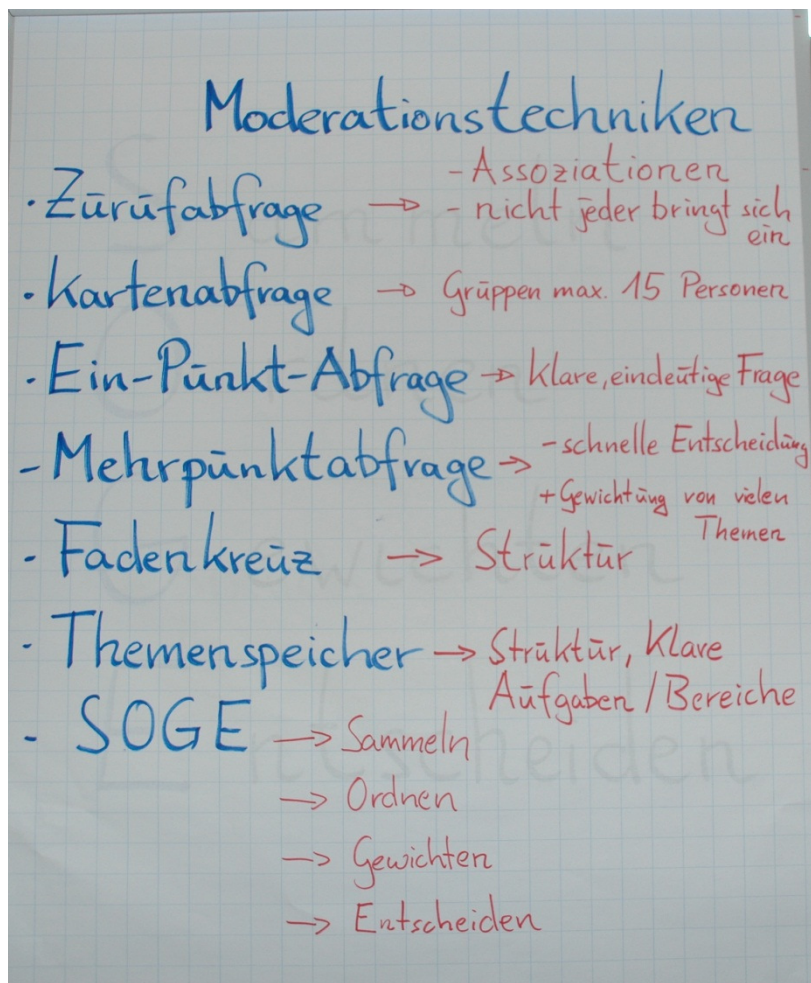 Moderationstechniken
- Assoziationen
· Zurufabfrage → - nicht jeder bringt sich
ein
· Kartenabfrage → Gruppen max. 15 Personen
· Ein-Punkt-Abfrage → Klare, eindeutige Frage
- Mehrpunktabfrage → - schnelle Entscheidung
+ Gewichtung von vielen
Themen
- Fadenkreuz → Struktur
- Themenspeicher → Struktur, Klare
Aufgaben / Bereiche
- SOGE → Sammeln
→ Ordnen
→ Gewichten
→ Entscheiden